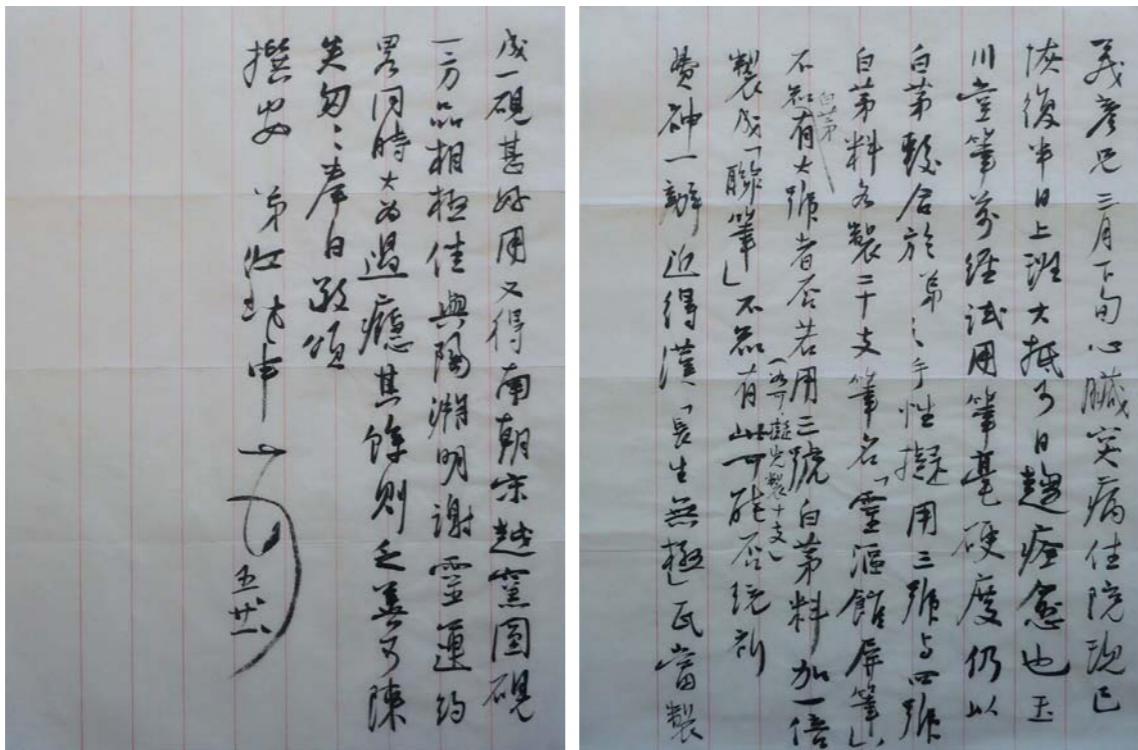 義彥兄三月下旬心臟突病住院現已
恢復半日上班大抵可日趨痊愈也玉
川堂筆前經試用筆毫硬度仍以
白茅較合於弟之手性擬用三號与四號
白茅料各製二十支筆名「靈漚館屏筆」
不知白茅有大號者否若用三號白茅料加一倍
(如可擬先製十支)
製成「聯筆」不知有此可能否統祈
費神一辦近得漢「長生無極」瓦當製
成一硯甚好用又得南朝宋越窯圓硯
一方品相極佳與陶淵明謝靈運約
畧同時大為過癮其餘則乏善可陳
矣匆匆奉白敬頌
撰安 弟
五廿八